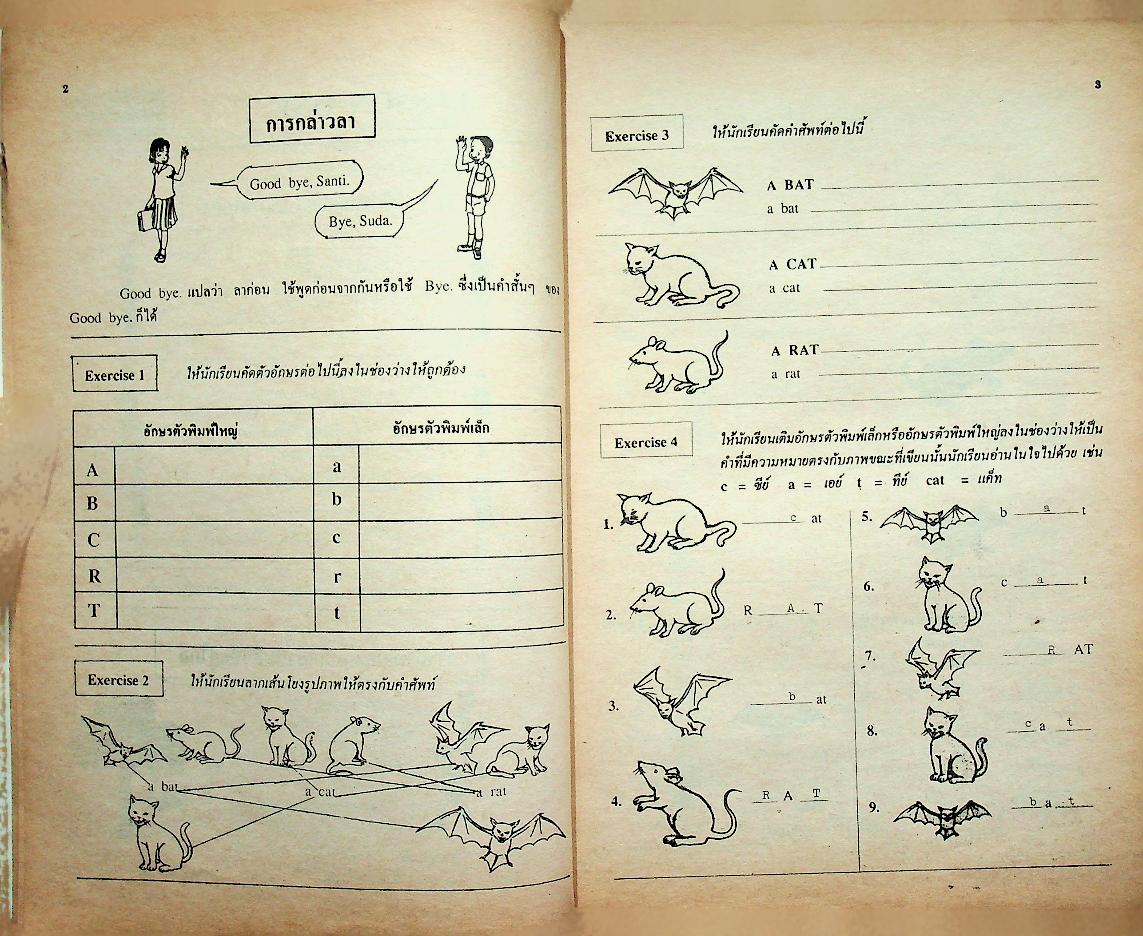 2
การกล่าวลา
Good bye, Santi.
Bye, Suda.
Good bye. แปลว่า ลาก่อน ใช้พูดก่อนจากกันหรือใช้ Bye. ซึ่งเป็นคำสั้นๆ ของ
Good bye. ก็ได้
Exercise 1 ให้นักเรียนคัดตัวอักษรต่อไปนี้ลงในช่องว่างให้ถูกต้อง
อักษรตัวพิมพ์ใหญ่ อักษรตัวพิมพ์เล็ก
A a
B b
C c
R r
T t
Exercise 2 ให้นักเรียนลากเส้นโยงรูปภาพให้ตรงกับคำศัพท์
a bat a cat a rat
3
Exercise 3 ให้นักเรียนคัดคำศัพท์ต่อไปนี้
A BAT
a bat
A CAT
a cat
A RAT
a rat
Exercise 4 ให้นักเรียนเติมอักษรตัวพิมพ์เล็กหรืออักษรตัวพิมพ์ใหญ่ลงในช่องว่างให้เป็น
คำที่มีความหมายตรงกับภาพขณะที่เขียนนั้นนักเรียนอ่านในใจไปด้วย เช่น
c = ซีย์ a = เอย์ t = ทีย์ cat = แค็ท
1. c at
2. R A T
3. b at
4. R A T
5. b a t
6. c a t
7. R AT
8. c a t
9. b a t